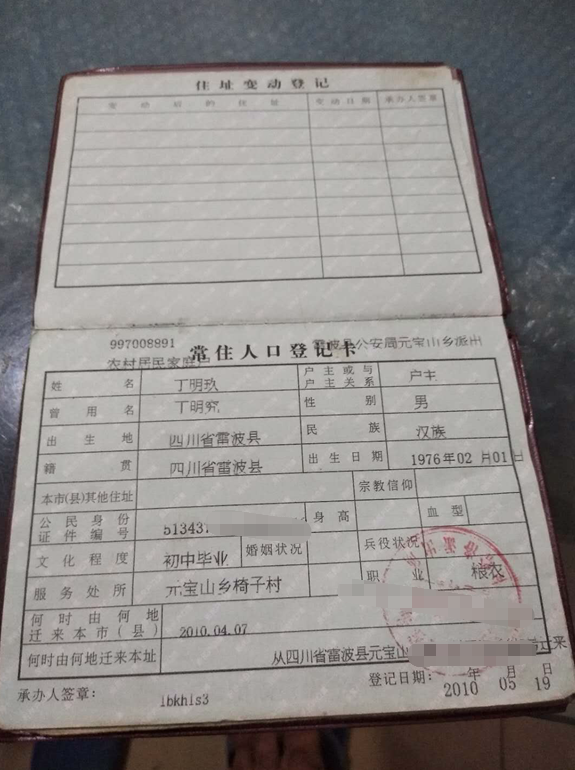 住址变动登记
变动后的住址 变动日期 承办人签章
997008891 雷波县公安局元宝山乡派出
农村居民家庭户
常住人口登记卡
姓名 丁明玖 户主或与户主关系 户主
曾用名 丁明究 性别 男
出生地 四川省雷波县 民族 汉族
籍贯 四川省雷波县 出生日期 1976年02月01日
本市(县)其他住址 宗教信仰
公民身份证件编号 51343 身高 血型
文化程度 初中毕业 婚姻状况 兵役状况
服务处所 元宝山乡椅子村 职业 粮农
何时由何地迁来本市(县) 2010.04.07
何时由何地迁来本址 从四川省雷波县元宝山 迁来
登记日期: 2010年05月19日
承办人签章: lbkhls3